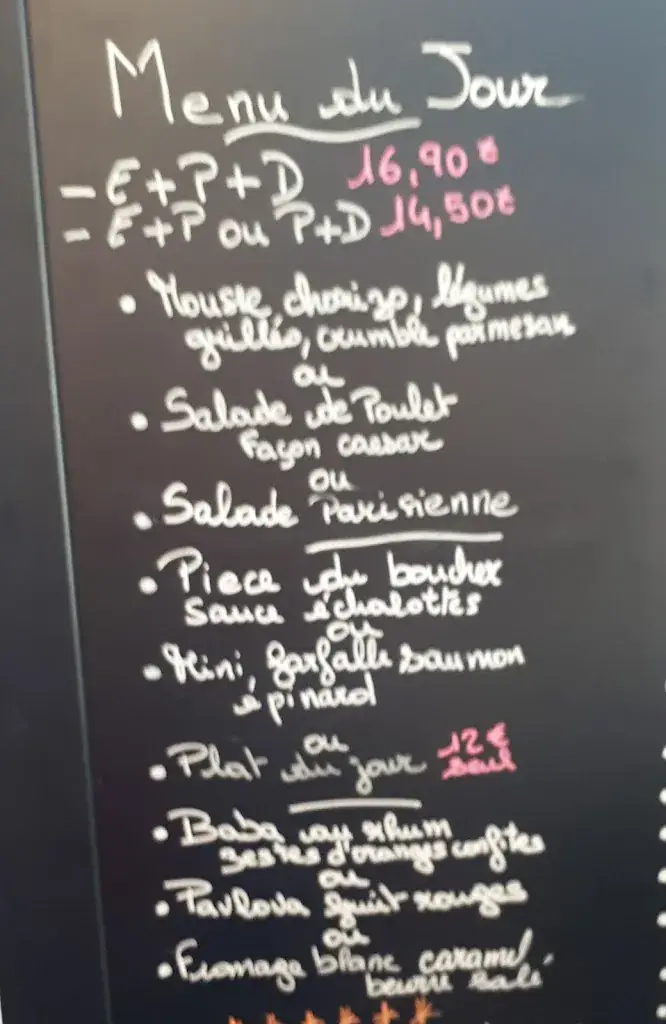 Menu du Jour
- E+P+D 16,90€
- E+P ou P+D 14,50€
• Mousse chorizo, légumes
grillés, crumble parmesan
ou
• Salade de Poulet
façon caesar
ou
• Salade Parisienne
• Piece du boucher
sauce échalottes
ou
• Mini, farfalle saumon
épinard
ou
• Plat du jour 12€
seul
• Baba au rhum
zestes d'oranges confites
ou
• Pavlova fruit rouges
ou
• Fromage blanc caramel
beurre salé